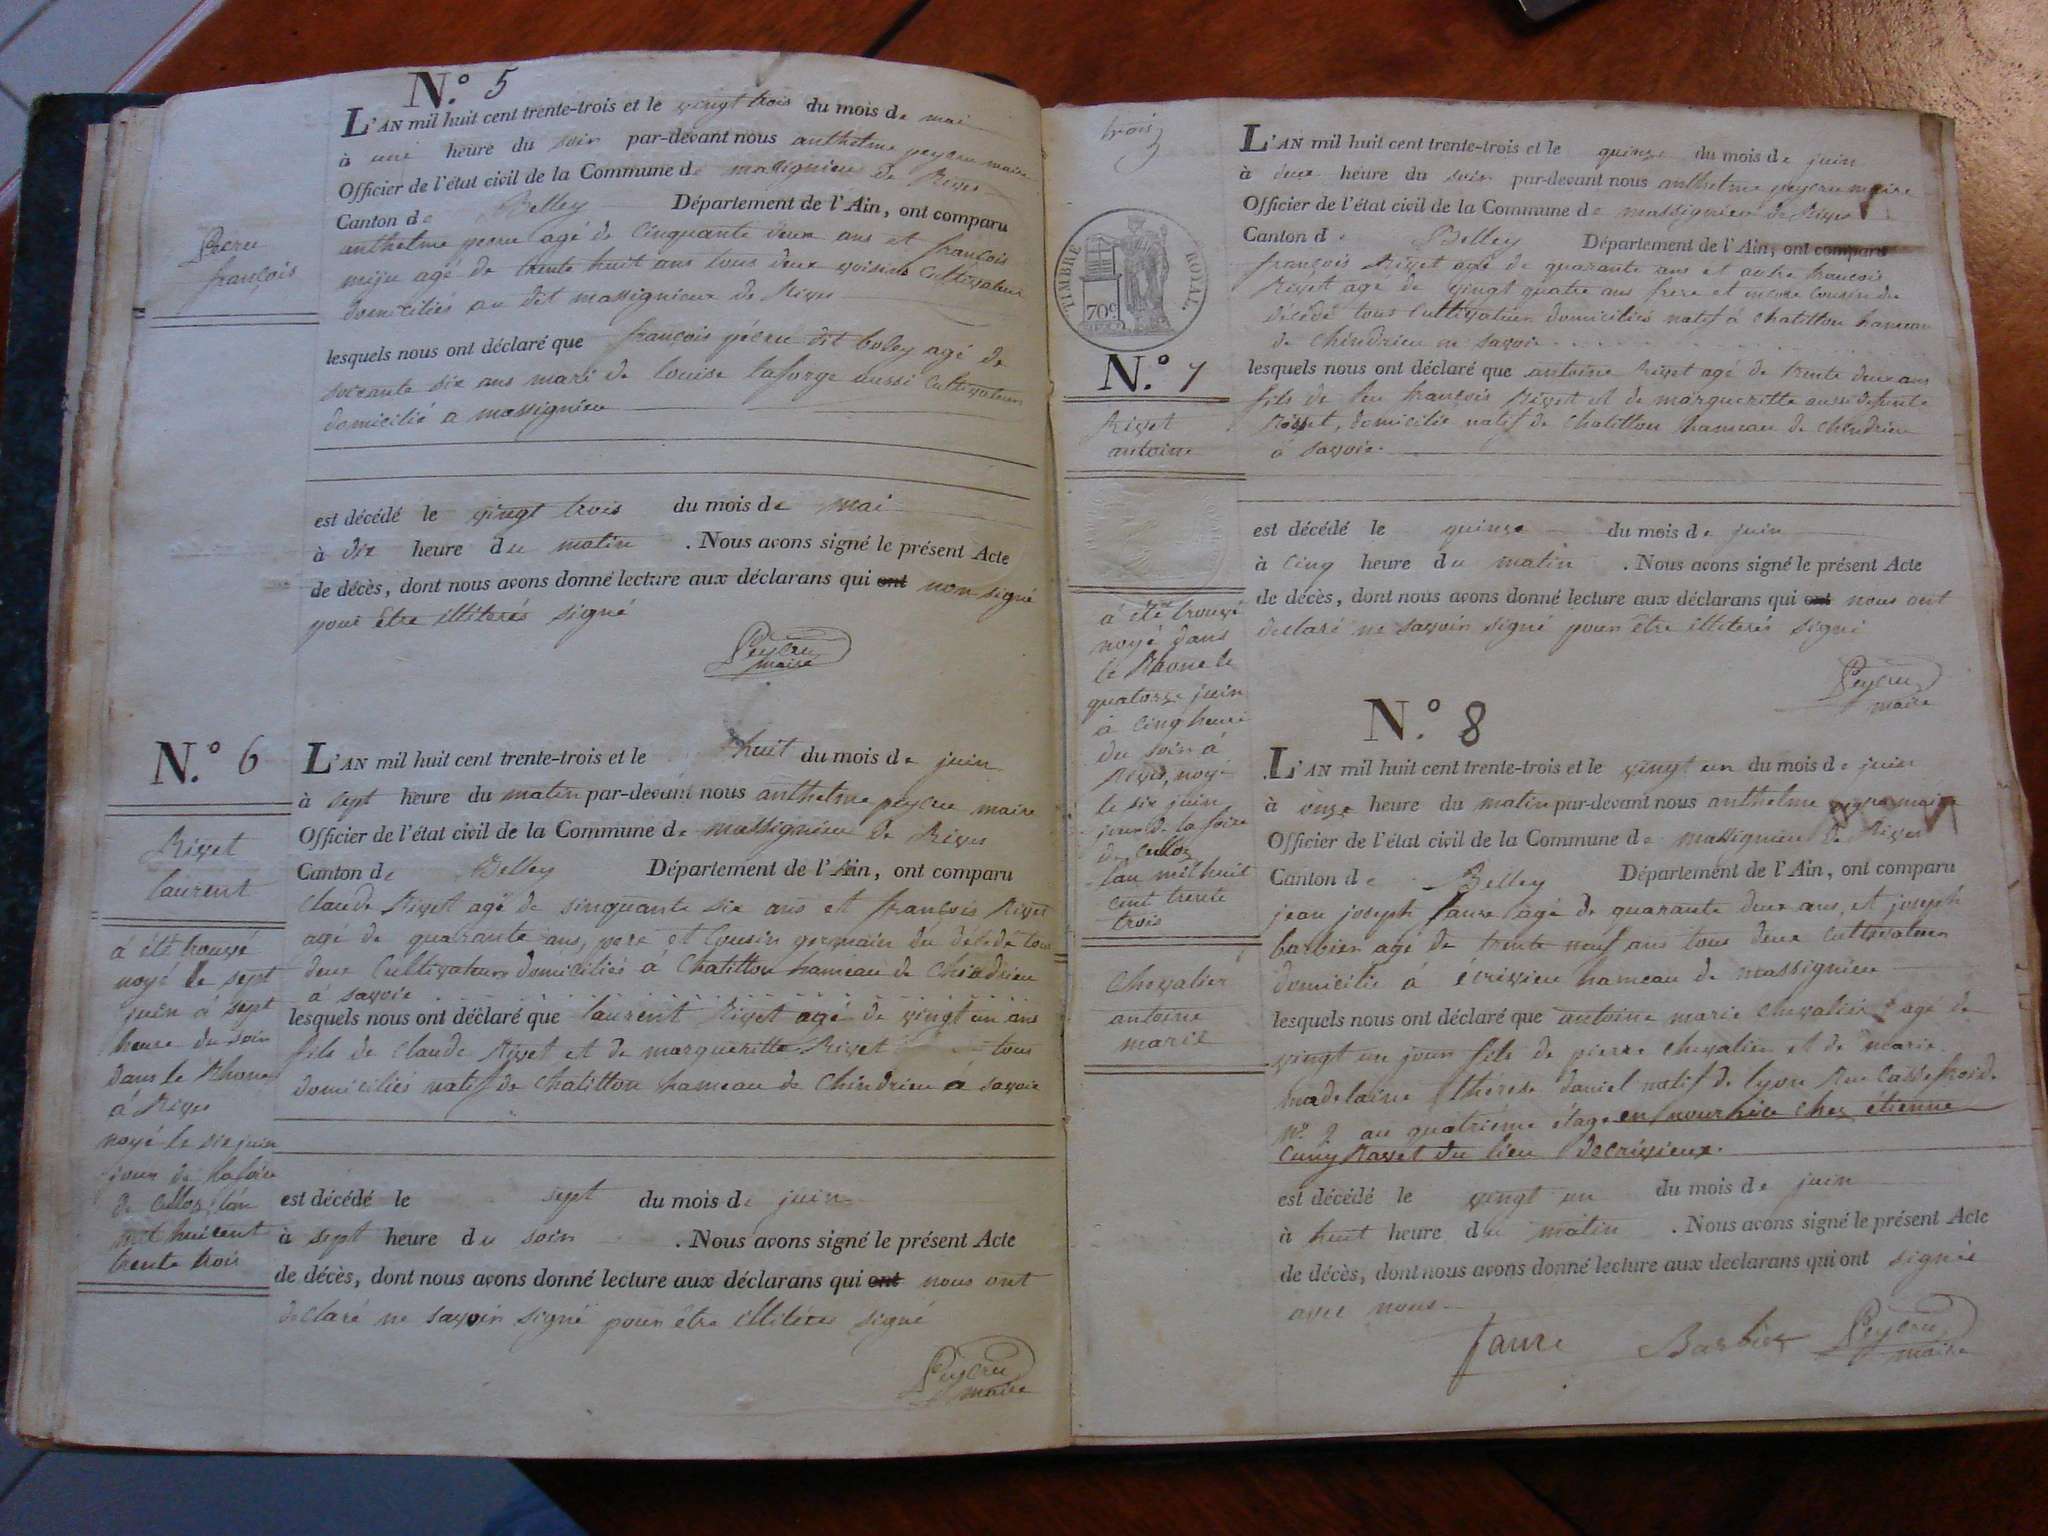 N.º 5
L'AN mil huit cent trente-trois et le vingt trois du mois de mai
à une heure du soir par-devant nous anthelme peycru maire
Officier de l'état civil de la Commune de massignieu de Rives
Canton de Belley Département de l'Ain, ont comparu
anthelme pecru agé de cinquante deux ans et françois
agé de trente huit ans tous deux voisins Cultivateur
domiciliés au dit massignieux de Rives
Pécru
françois
lesquels nous ont déclaré que françois pécru dit boley agé de
soixante six ans mari de louise laforge aussi Cultivateur
domicilié a massignieu
est décédé le vingt trois du mois de mai
à dix heure du matin . Nous avons signé le présent Acte
de décès, dont nous avons donné lecture aux déclarans qui ont non signé
pour être illiterés signé
Peycru
maire
N.º 6
Rivet
laurent
à été trouvé
noyé le sept
juin à sept
heure du soir
dans le Rhone
à Rives
noyé le six juin
jour de la foire
de Culloz, l'an
mil huit cent
trente trois
L'AN mil huit cent trente-trois et le huit du mois de juin
à sept heure du matin par-devant nous anthelme peycru maire
Officier de l'état civil de la Commune de massignieu de Rives
Canton de Belley Département de l'Ain, ont comparu
Claude Rivet agé de sinquante six ans et françois Rivet
agé de quarante ans, pere et Cousin germain du décédé tous
deux Cultivateurs domiciliés à Chatillon hameau de Chindrieu
à savoie
lesquels nous ont déclaré que laurent Rivet agé de vingt un ans
fils de Claude Rivet et de margueritte Rivet tous
domiciliés natif de Chatillon hameau de Chindrieu à savoie
est décédé le sept du mois de juin
à sept heure du soir . Nous avons signé le présent Acte
de décès, dont nous avons donné lecture aux déclarans qui ont nous ont
declaré ne savoir signé pour être illiterés signé
Peycru
maire
trois
TIMBRE ROYAL.
70c
N.º 7
Rivet
antoine
à été trouvé
noyé dans
le Rhone le
quatorze juin
à Cinq heure
du soir à
Rives, noyé
le six juin
jour de la foire
de Culloz
l'an mil huit
cent trente
trois
L'AN mil huit cent trente-trois et le quinze du mois de juin
à deux heure du soir par-devant nous anthelme peycru maire
Officier de l'état civil de la Commune de massignieu de Rives
Canton de Belley Département de l'Ain, ont comparu
françois Rivet agé de quarante ans et autre françois
Rivet agé de vingt quatre ans frere et Cousin du
décédé tous Cultivateurs domiciliés natif à Chatillon hameau
de Chindrieu en savoie
lesquels nous ont déclaré que antoine Rivet agé de trente deux ans
fils de feu françois Rivet et de margueritte aussi defunte
Rivet, domicilié natif de Chatillon hameau de Chindrieu
à savoie
est décédé le quinze du mois de juin
à Cinq heure du matin . Nous avons signé le présent Acte
de décès, dont nous avons donné lecture aux déclarans qui ont nous ont
declaré ne savoir signé pour être illiterés signé
Peycru
maire
N.º 8
Chevalier
antoine
marie
L'AN mil huit cent trente-trois et le vingt un du mois de juin
à onze heure du matin par-devant nous anthelme peycru maire
Officier de l'état civil de la Commune de massignieu de Rives
Canton de Belley Département de l'Ain, ont comparu
jean joseph faure agé de quarante deux ans, et joseph
barbier agé de trente neuf ans tous deux Cultivateur
domicilié à écrivieu hameau de massignieu
lesquels nous ont déclaré que antoine marie Chevalier agé de
vingt un jour fils de pierre Chevalier et de marie
madelaine thérese daniel natif de lyon Rue Casse froide
nº 2 au quatriéme étage en nourrice Chez étienne
Cuny Ravet du lieu decrivieux.
est décédé le vingt un du mois de juin
à huit heure du matin . Nous avons signé le présent Acte
de décès, dont nous avons donné lecture aux declarans qui ont signé
avec nous
faure Barbier Peycru
maire